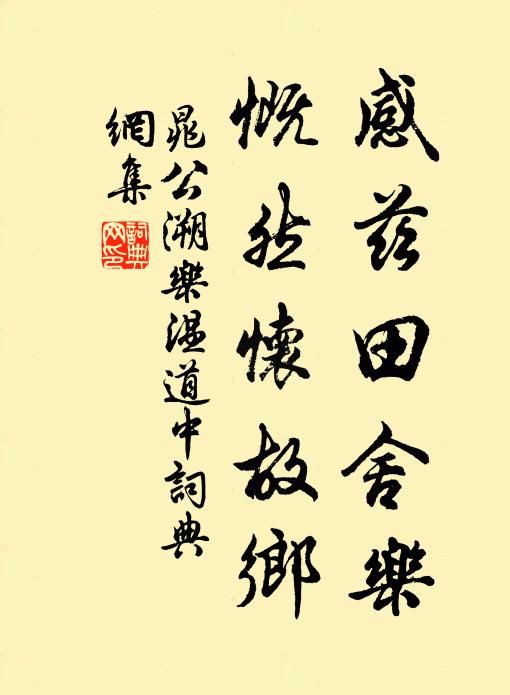 感茲田舍樂
慨然懷故鄉
晁公溯樂溫道中詞典
網集
詞典
网印